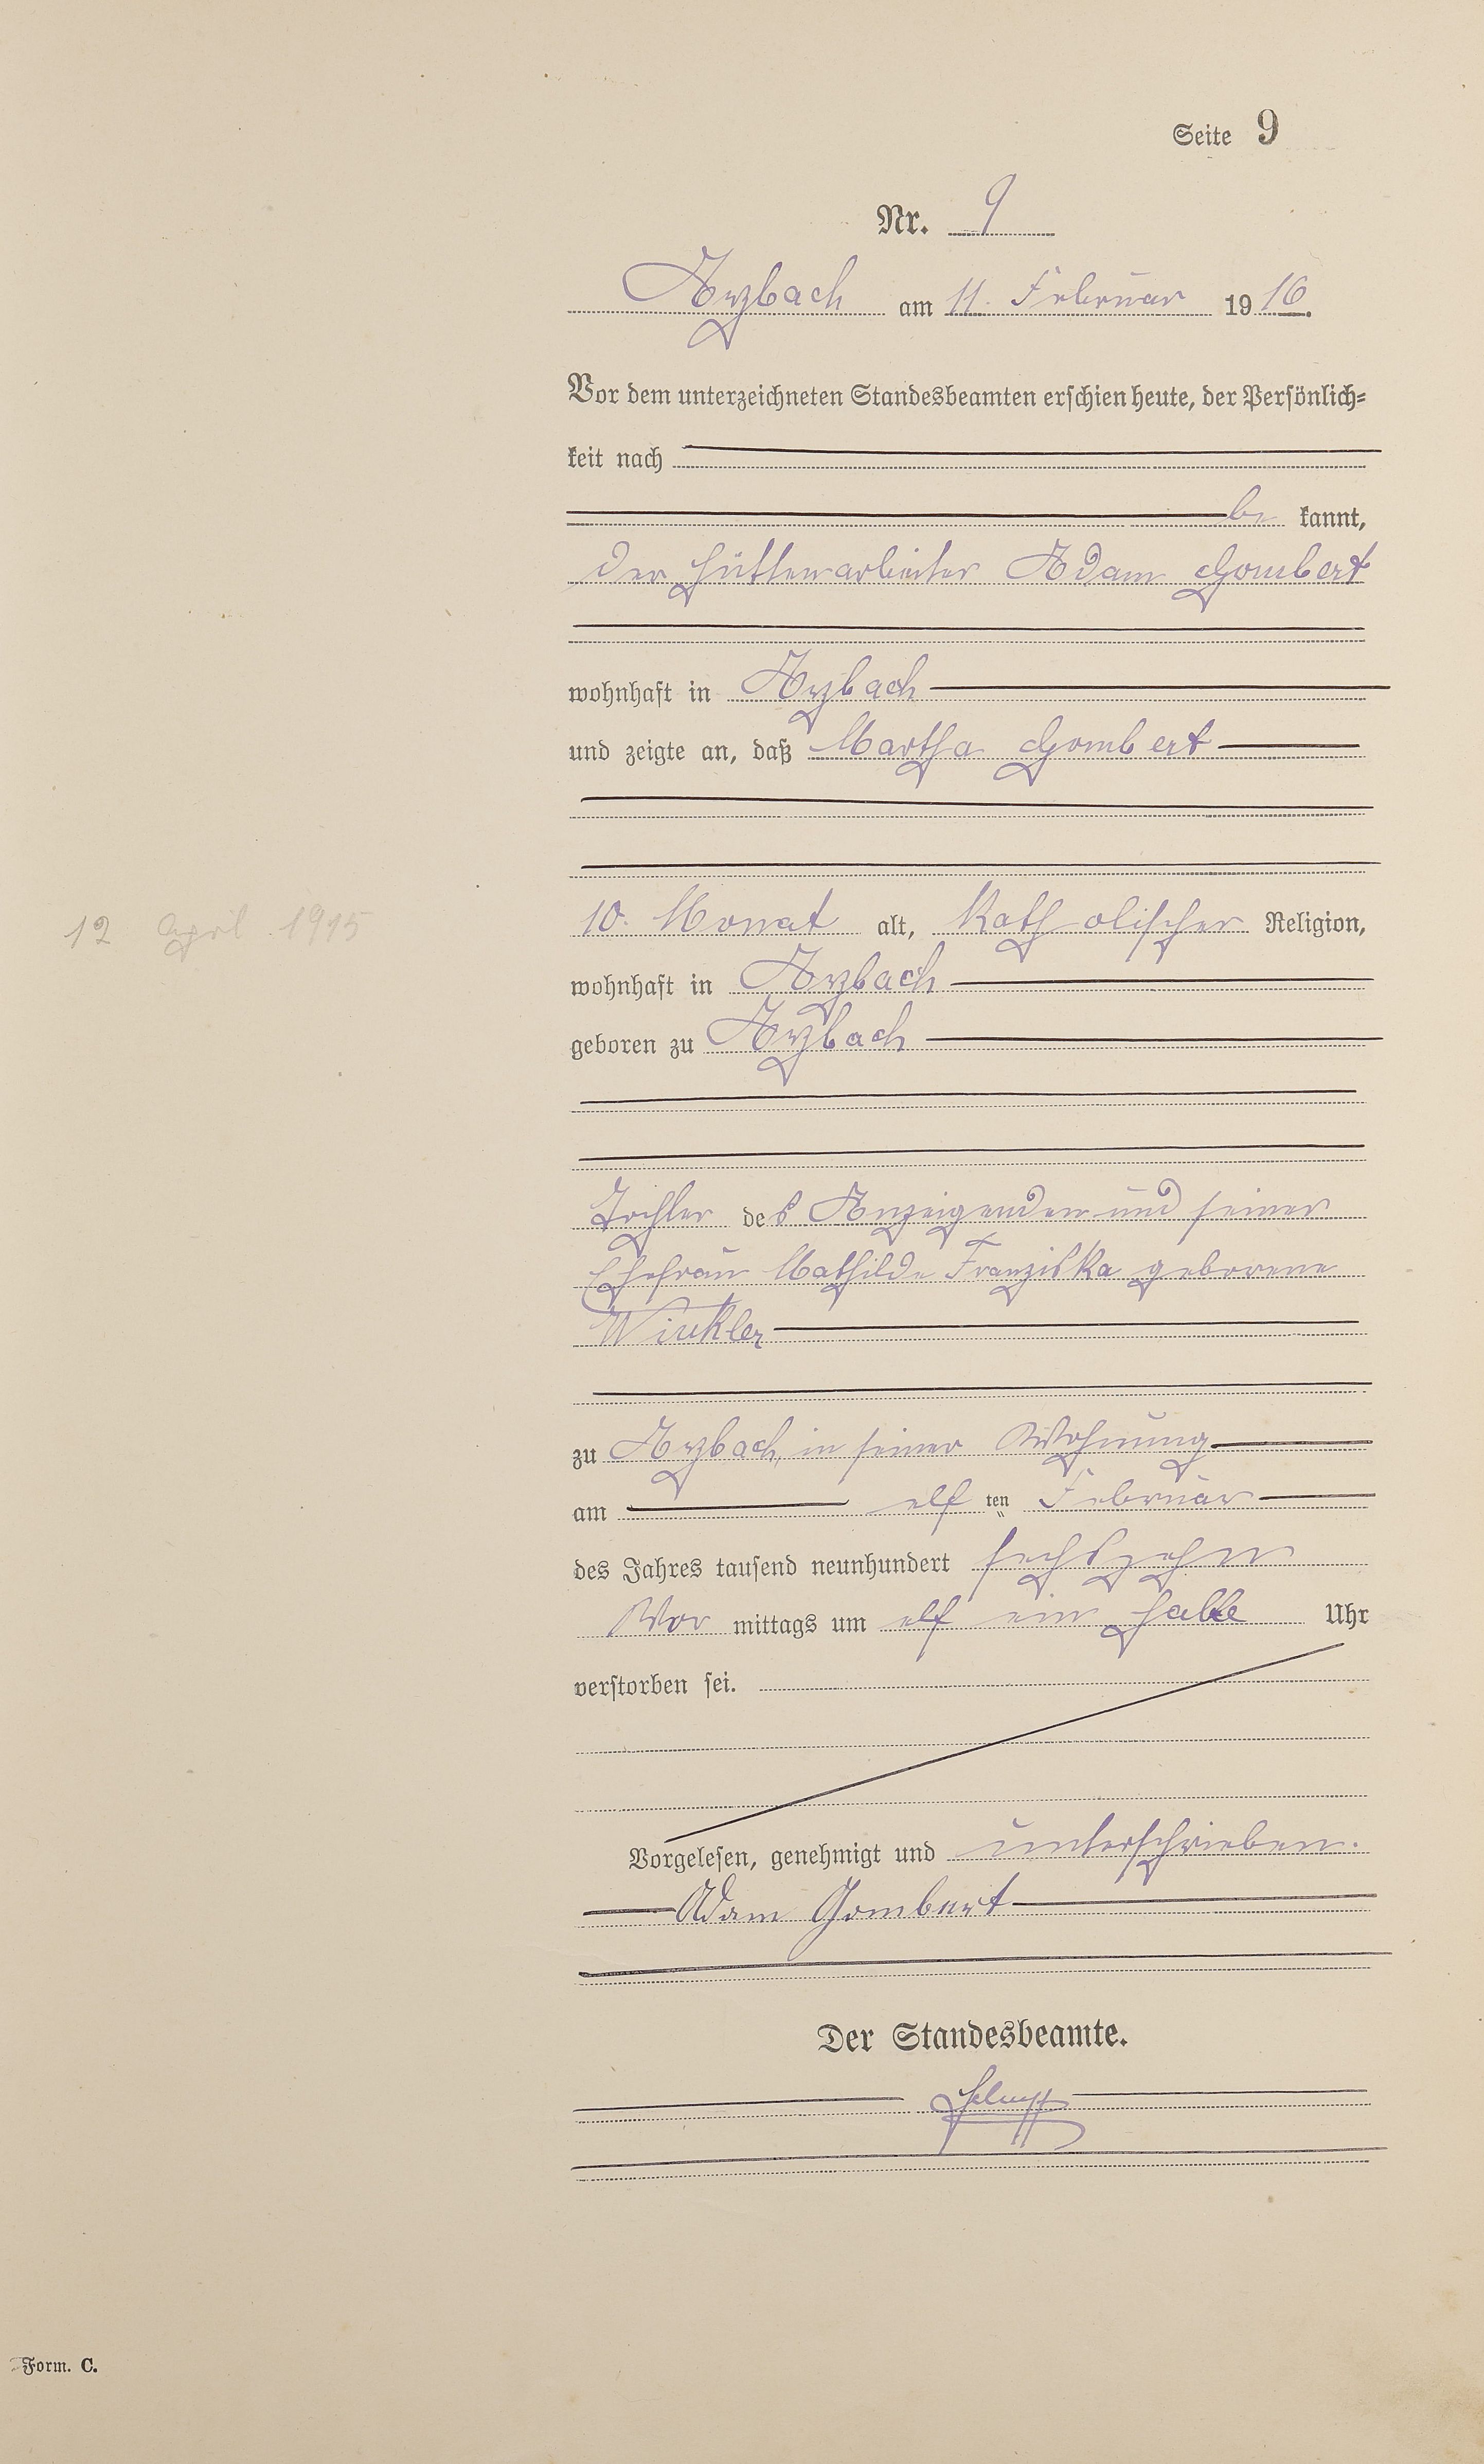 Seite 9
Nr. 9
Arzbach am 11. Februar 1916.
Vor dem unterzeichneten Standesbeamten erschien heute, der Persönlich-
keit nach
be kannt,
der Hüttenarbeiter Adam Gombert
wohnhaft in Arzbach
und zeigte an, daß Martha Gombert
12 April 1915
10. Monat alt, katholischer Religion,
wohnhaft in Arzbach
geboren zu Arzbach
Tochter des Anzeigenden und seiner
Ehefrau Mathilde Franziska geborene
Winkler
zu Arzbach, in seiner Wohnung
am elf ten Februar
des Jahres tausend neunhundert sechszehn
Vor mittags um elf ein halb Uhr
verstorben sei.
Vorgelesen, genehmigt und unterschrieben.
Adam Gombert
Der Standesbeamte.
Form. C.